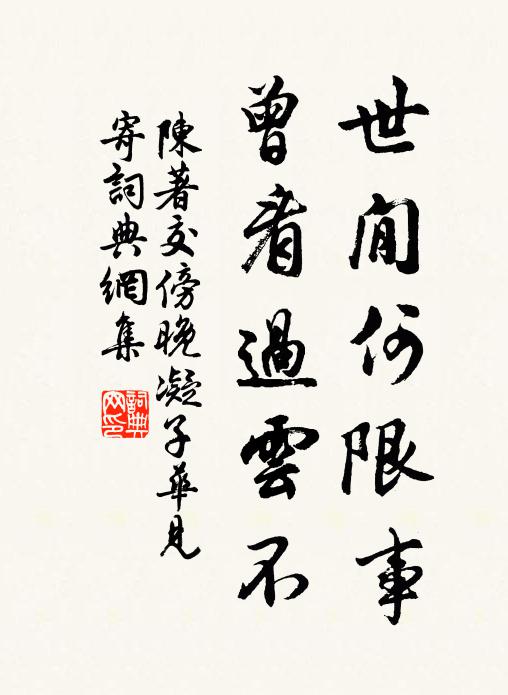 世間何限事
曾看過雲不
陳著交傍晚凝子華見
寄詞典網集
詞典网印